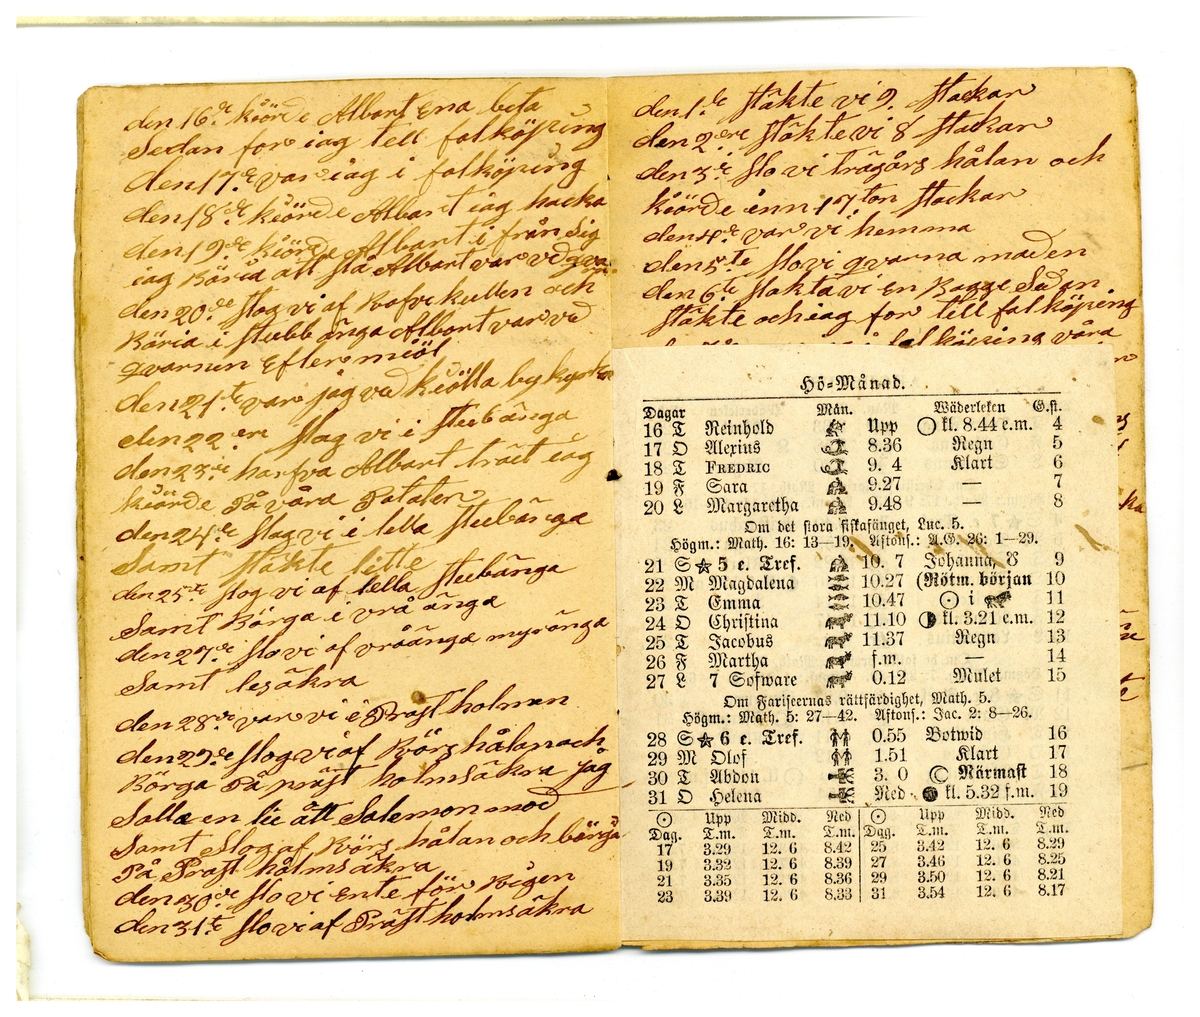 den 16de körde Albart Ena beta
Sedan for iag tell falköping
den 17de var iag i falköping
den 18de körde Albart iag hacka
den 19de körde Albart i från Sig
iag Böria att slå Albart var ved qva
den 20de slog vi af och
Böria i stubb änga Albart var ved
qvarnen Efter miöl
den 21te var jag ved kiölla by
den 22en slag vi i steebänga
den 23de harfva Albart träct iag
kiörde På våra Pataten
den 24de slag vi i lella steebänga
Samt stäkte lette
den 25te slog vi af lella steebänga
Samt Börga i vrå änga
den 27de slo vi af vråänga myränga
Samt lesäkra
den 28de var vi e Präst holmen
den 29de slog vi af Börs hålan och
Börga På präst holmsäkra jag
Salla en lie ått Salemon mod
Samt slog af Börs hålan och börga
På Präst hålmsäkra
den 30de slo vi ente för Rägen
den 31te slo vi af Präst holmsäkra
den 1de stäkte vi 9 stackar
den 2dre stäkte vi 8 stackar
den 3de slo vi trägårs hålan och
kiörde inn 17 ton stackar
den 4de var vi hemma
den 5te slo vi qvarna maden
den 6te slakta vi en Bagge Sedan
stäkte och iag for tell falköping
falköping våra
Hö-Månad.
Dagar Mån. Wäderleken G.st.
16 T Reinhold Upp ○ kl. 8.44 e.m. 4
17 O Alexius 8.36 Regn 5
18 T FREDRIC 9. 4 Klart 6
19 F Sara 9.27 — 7
20 L Margaretha 9.48 — 8
Om det stora fiskafänget, Luc. 5.
Högm.: Math. 16: 13—19. Aftons.: A.G. 26: 1—29.
21 S ☆ 5 e. Tref. 10. 7 Johanna, ☋ 9
22 M Magdalena 10.27 (Rötm. början 10
23 T Emma 10.47 ☉ i 11
24 O Christina 11.10 ◑ kl. 3.21 e.m. 12
25 T Jacobus 11.37 Regn 13
26 F Martha f.m. — 14
27 L 7 Sofware 0.12 Mulet 15
Om Fariseernas rättfärdighet, Math. 5.
Högm.: Math. 5: 27—42. Aftons.: Jac. 2: 8—26.
28 S ☆ 6 e. Tref. 0.55 Botwid 16
29 M Olof 1.51 Klart 17
30 T Abdon 3. 0 ☾ Närmast 18
31 O Helena Ned ● kl. 5.32 f.m. 19
☉ Upp Midd. Ned ☉ Upp Midd. Ned
Dag. T.m. T.m. T.m. Dag. T.m. T.m. T.m.
17 3.29 12. 6 8.42 25 3.42 12. 6 8.29
19 3.32 12. 6 8.39 27 3.46 12. 6 8.25
21 3.35 12. 6 8.36 29 3.50 12. 6 8.21
23 3.39 12. 6 8.33 31 3.54 12. 6 8.17